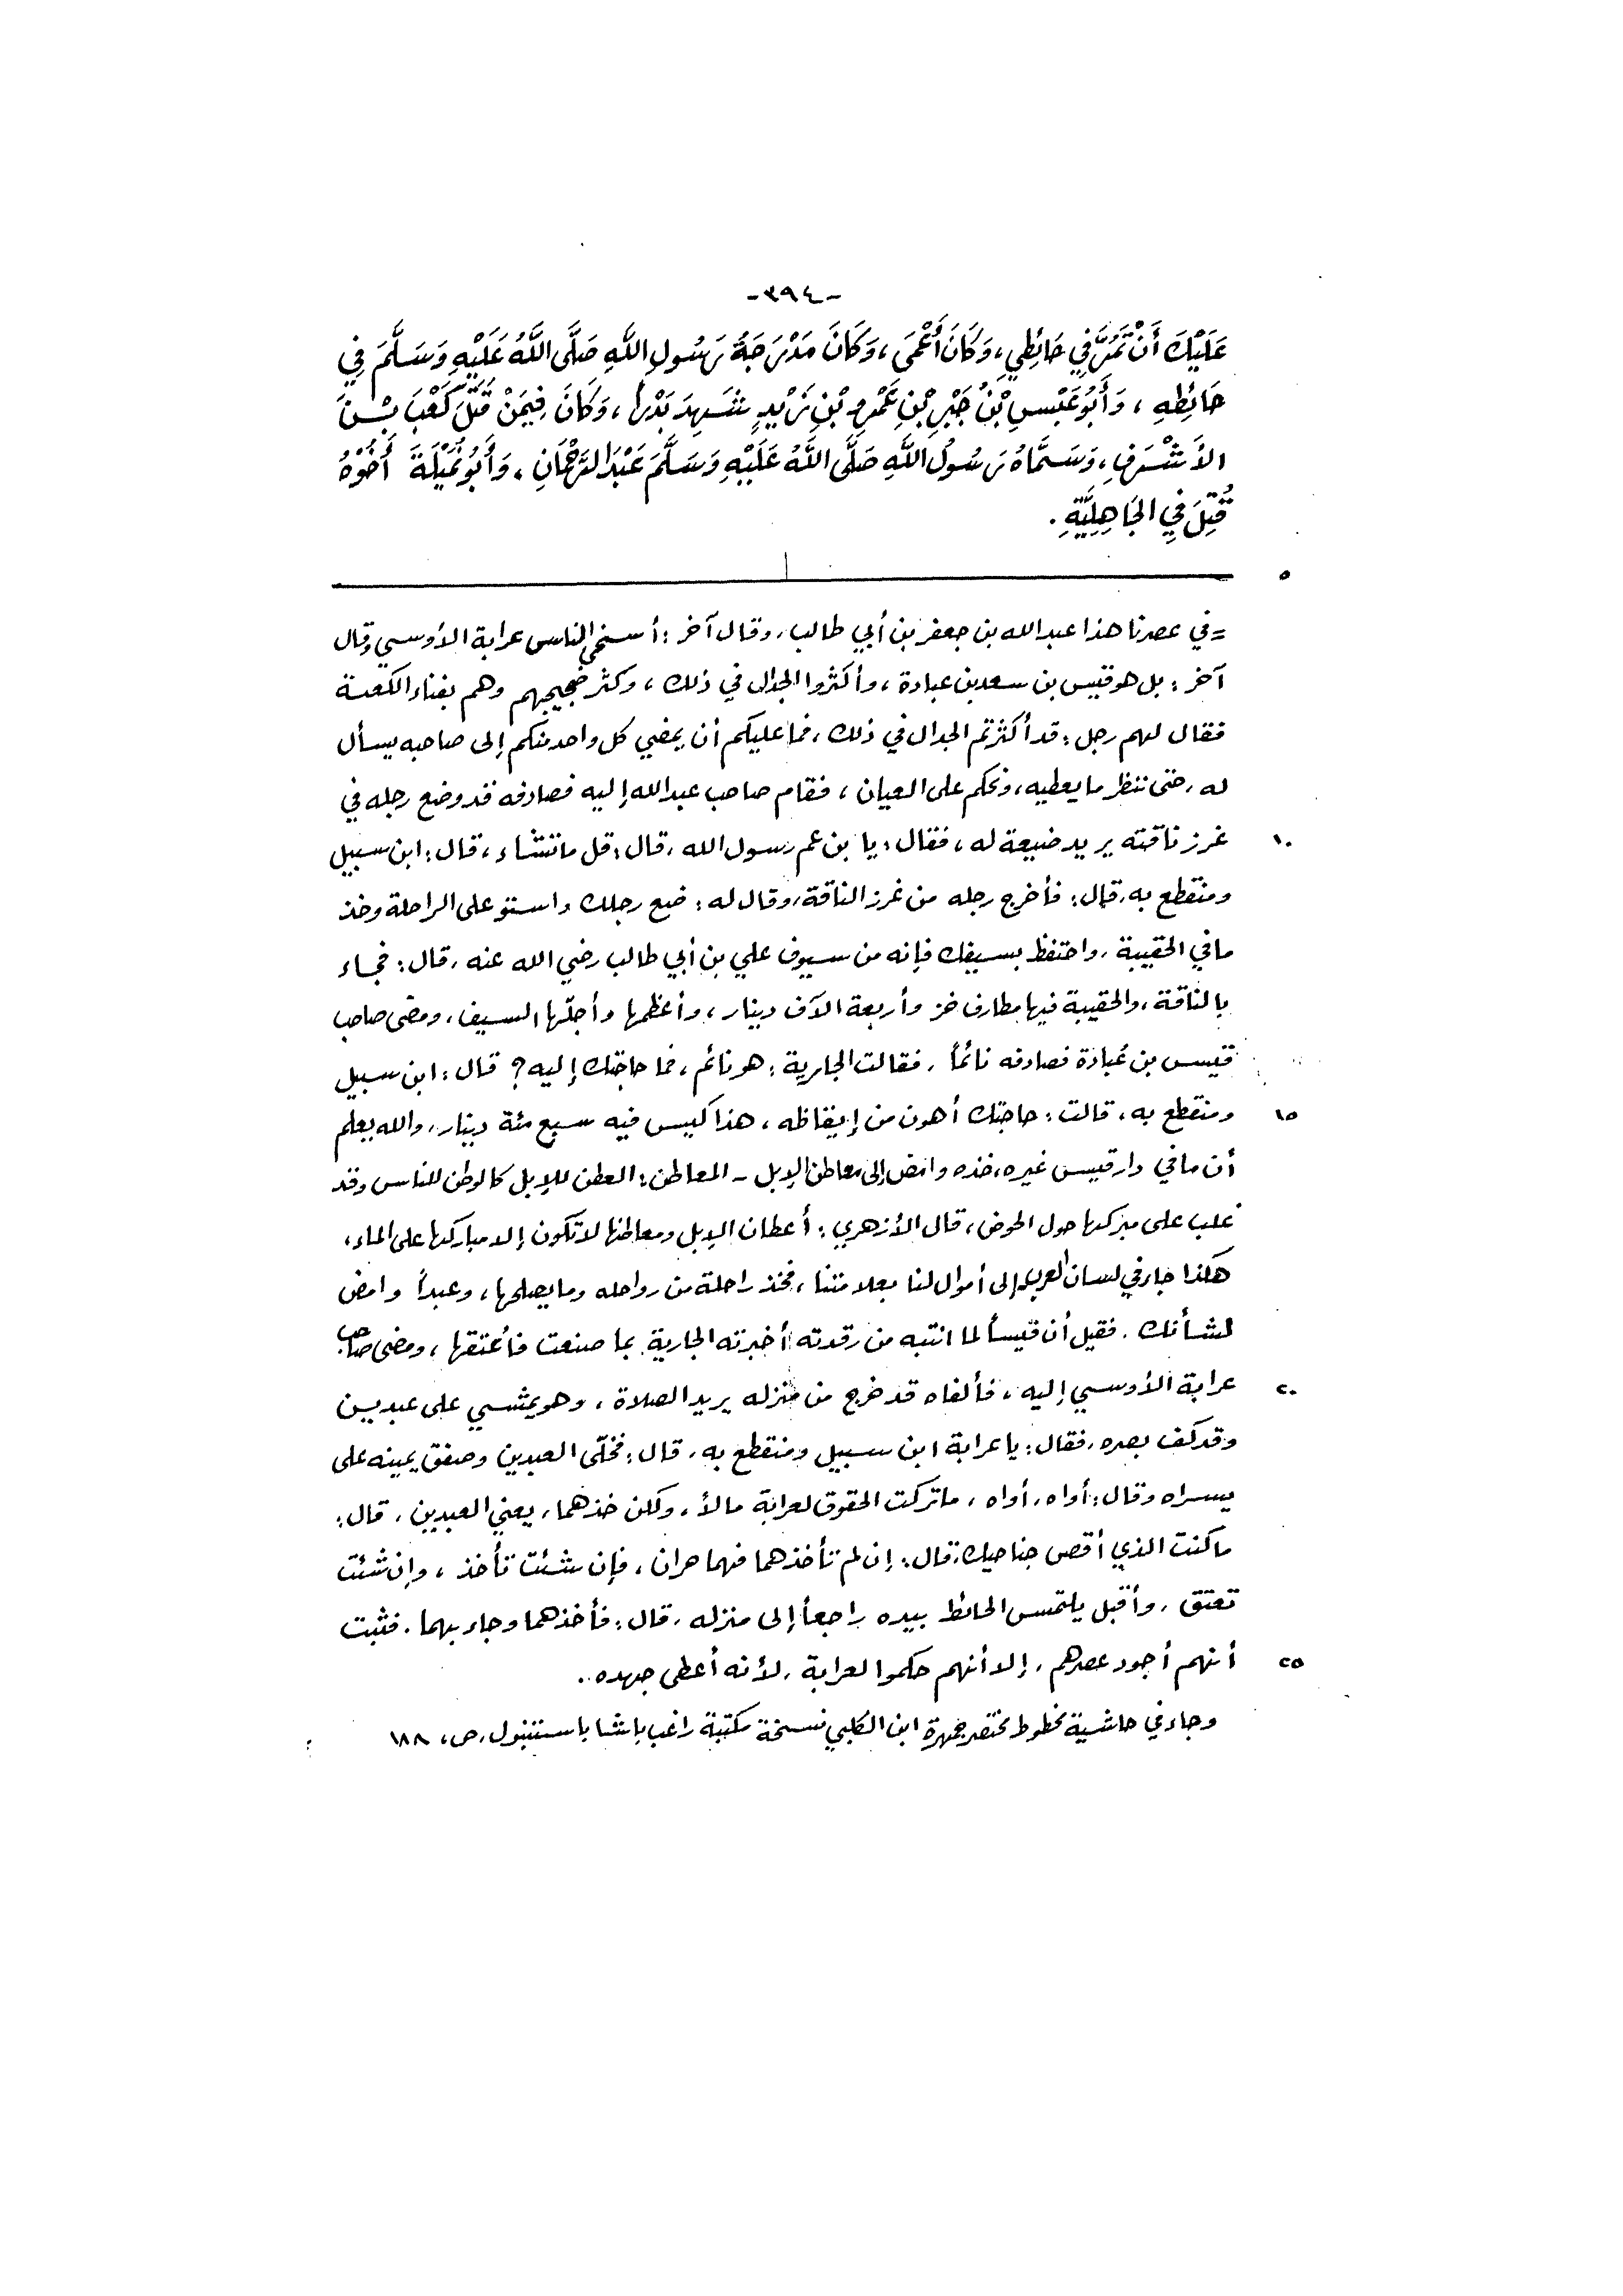 -٣٩٤-
عَلَيْكَ أَنْ تَمُرَّ فِي حَائِطِي، وَكَانَ أَعْمَى، وَكَانَ مَدْرَجَةُ رَسُولِ اللَّهِ صَلَّى اللَّهُ عَلَيْهِ وَسَلَّمَ فِي
حَائِطِهِ، وَأَبُو عَبْسِ بْنُ جَبْرِ بْنِ عَمْرِو بْنِ زَيْدٍ شَهِدَ بَدْرًا، وَكَانَ فِيمَنْ قَتَلَ كَعْبَ بْنَ
الأَشْرَفِ، وَسَمَّاهُ رَسُولُ اللَّهِ صَلَّى اللَّهُ عَلَيْهِ وَسَلَّمَ عَبْدَ الرَّحْمَانِ، وَأَبُو نُمَيْلَةَ أَخُوْهُ
قُتِلَ فِي الجَاهِلِيَّةِ.
٥
= في عصرنا هذا عبد الله بن جعفر بن أبي طالب، وقال آخر: أسخى الناس عرابة الأوسي وقال
آخر: بل هو قيس بن سعد بن عبادة، وأكثروا الجدال في ذلك، وكثر ضجيجهم وهم بفناء الكعبة
فقال لهم رجل: قد أكثرتم الجدال في ذلك، فما عليكم أن يمضي كل واحد منكم إلى صاحبه يسأل
له، حتى ننظر ما يعطيه، ونحكم على العيان، فقام صاحب عبد الله إليه فصادفه قد وضع رجله في
١٠ غرز ناقته يريد ضيعة له، فقال: يا بن عم رسول الله، قال: قل ما تشاء، قال: ابن سبيل
ومنقطع به، قال: فأخرج رجله من غرز الناقة، وقال له: ضع رجلك واستو على الراحلة وخذ
ما في الحقيبة، واحتفظ بسيفك فإنه من سيوف علي بن أبي طالب رضي الله عنه، قال: فجاء
بالناقة، والحقيبة فيها مطارف خز وأربعة الآف دينار، وأعظمها وأجلّها السيف، ومضى صاحب
قيس بن عُبادة فصادفه نائماً، فقالت الجارية: هو نائم، فما حاجتك إليه؟ قال: ابن سبيل
١٥ ومنقطع به، قالت: حاجتك أهون من إيقاظه، هذا كيس فيه سبع مئة دينار، والله يعلم
أن ما في دار قيس غيره، خذه وامض إلى معاطن الإبل - المعاطن: العطن للإبل كالوطن للناس وقد
غلب على مبركها حول الحوض، قال الأزهري: أعطان الإبل ومعاطنها لا تكون إلا مباركها على الماء،
هكذا جاء في لسان العرب إلى أموال لنا بعلامتنا، فخذ راحلة من رواحله وما يصلحها، وعبداً وامض
لشأنك، فقيل أن قيساً لما انتبه من رقدته أخبرته الجارية بما صنعت فأعتقها، ومضى صاحب
٢٠ عرابة الأوسي إليه، فألفاه قد خرج من منزله يريد الصلاة، وهو يمشي على عبدين
وقد كف بصره، فقال: يا عرابة ابن سبيل ومنقطع به، قال: فخلّى العبدين وصفق يمينه على
يسراه وقال: أواه، أواه، ما تركت الحقوق لعرابة مالاً، ولكن خذهما، يعني العبدين، قال:
ما كنت الذي أقص جناحيك، قال: إن لم تأخذهما فهما حران، فإن شئت تأخذ، وإن شئت
تعتق، وأقبل يلتمس الحائط بيده راجعاً إلى منزله، قال: فأخذهما وجاء بهما، فثبت
٢٥ أنهم أجود عصرهم، إلا أنهم حكموا لعرابة، لأنه أعطى جهده.
وجاء في حاشية مخطوط مختصر جمهرة ابن الكلبي نسخة مكتبة راغب باشا باستنبول، ص، ١٨٨